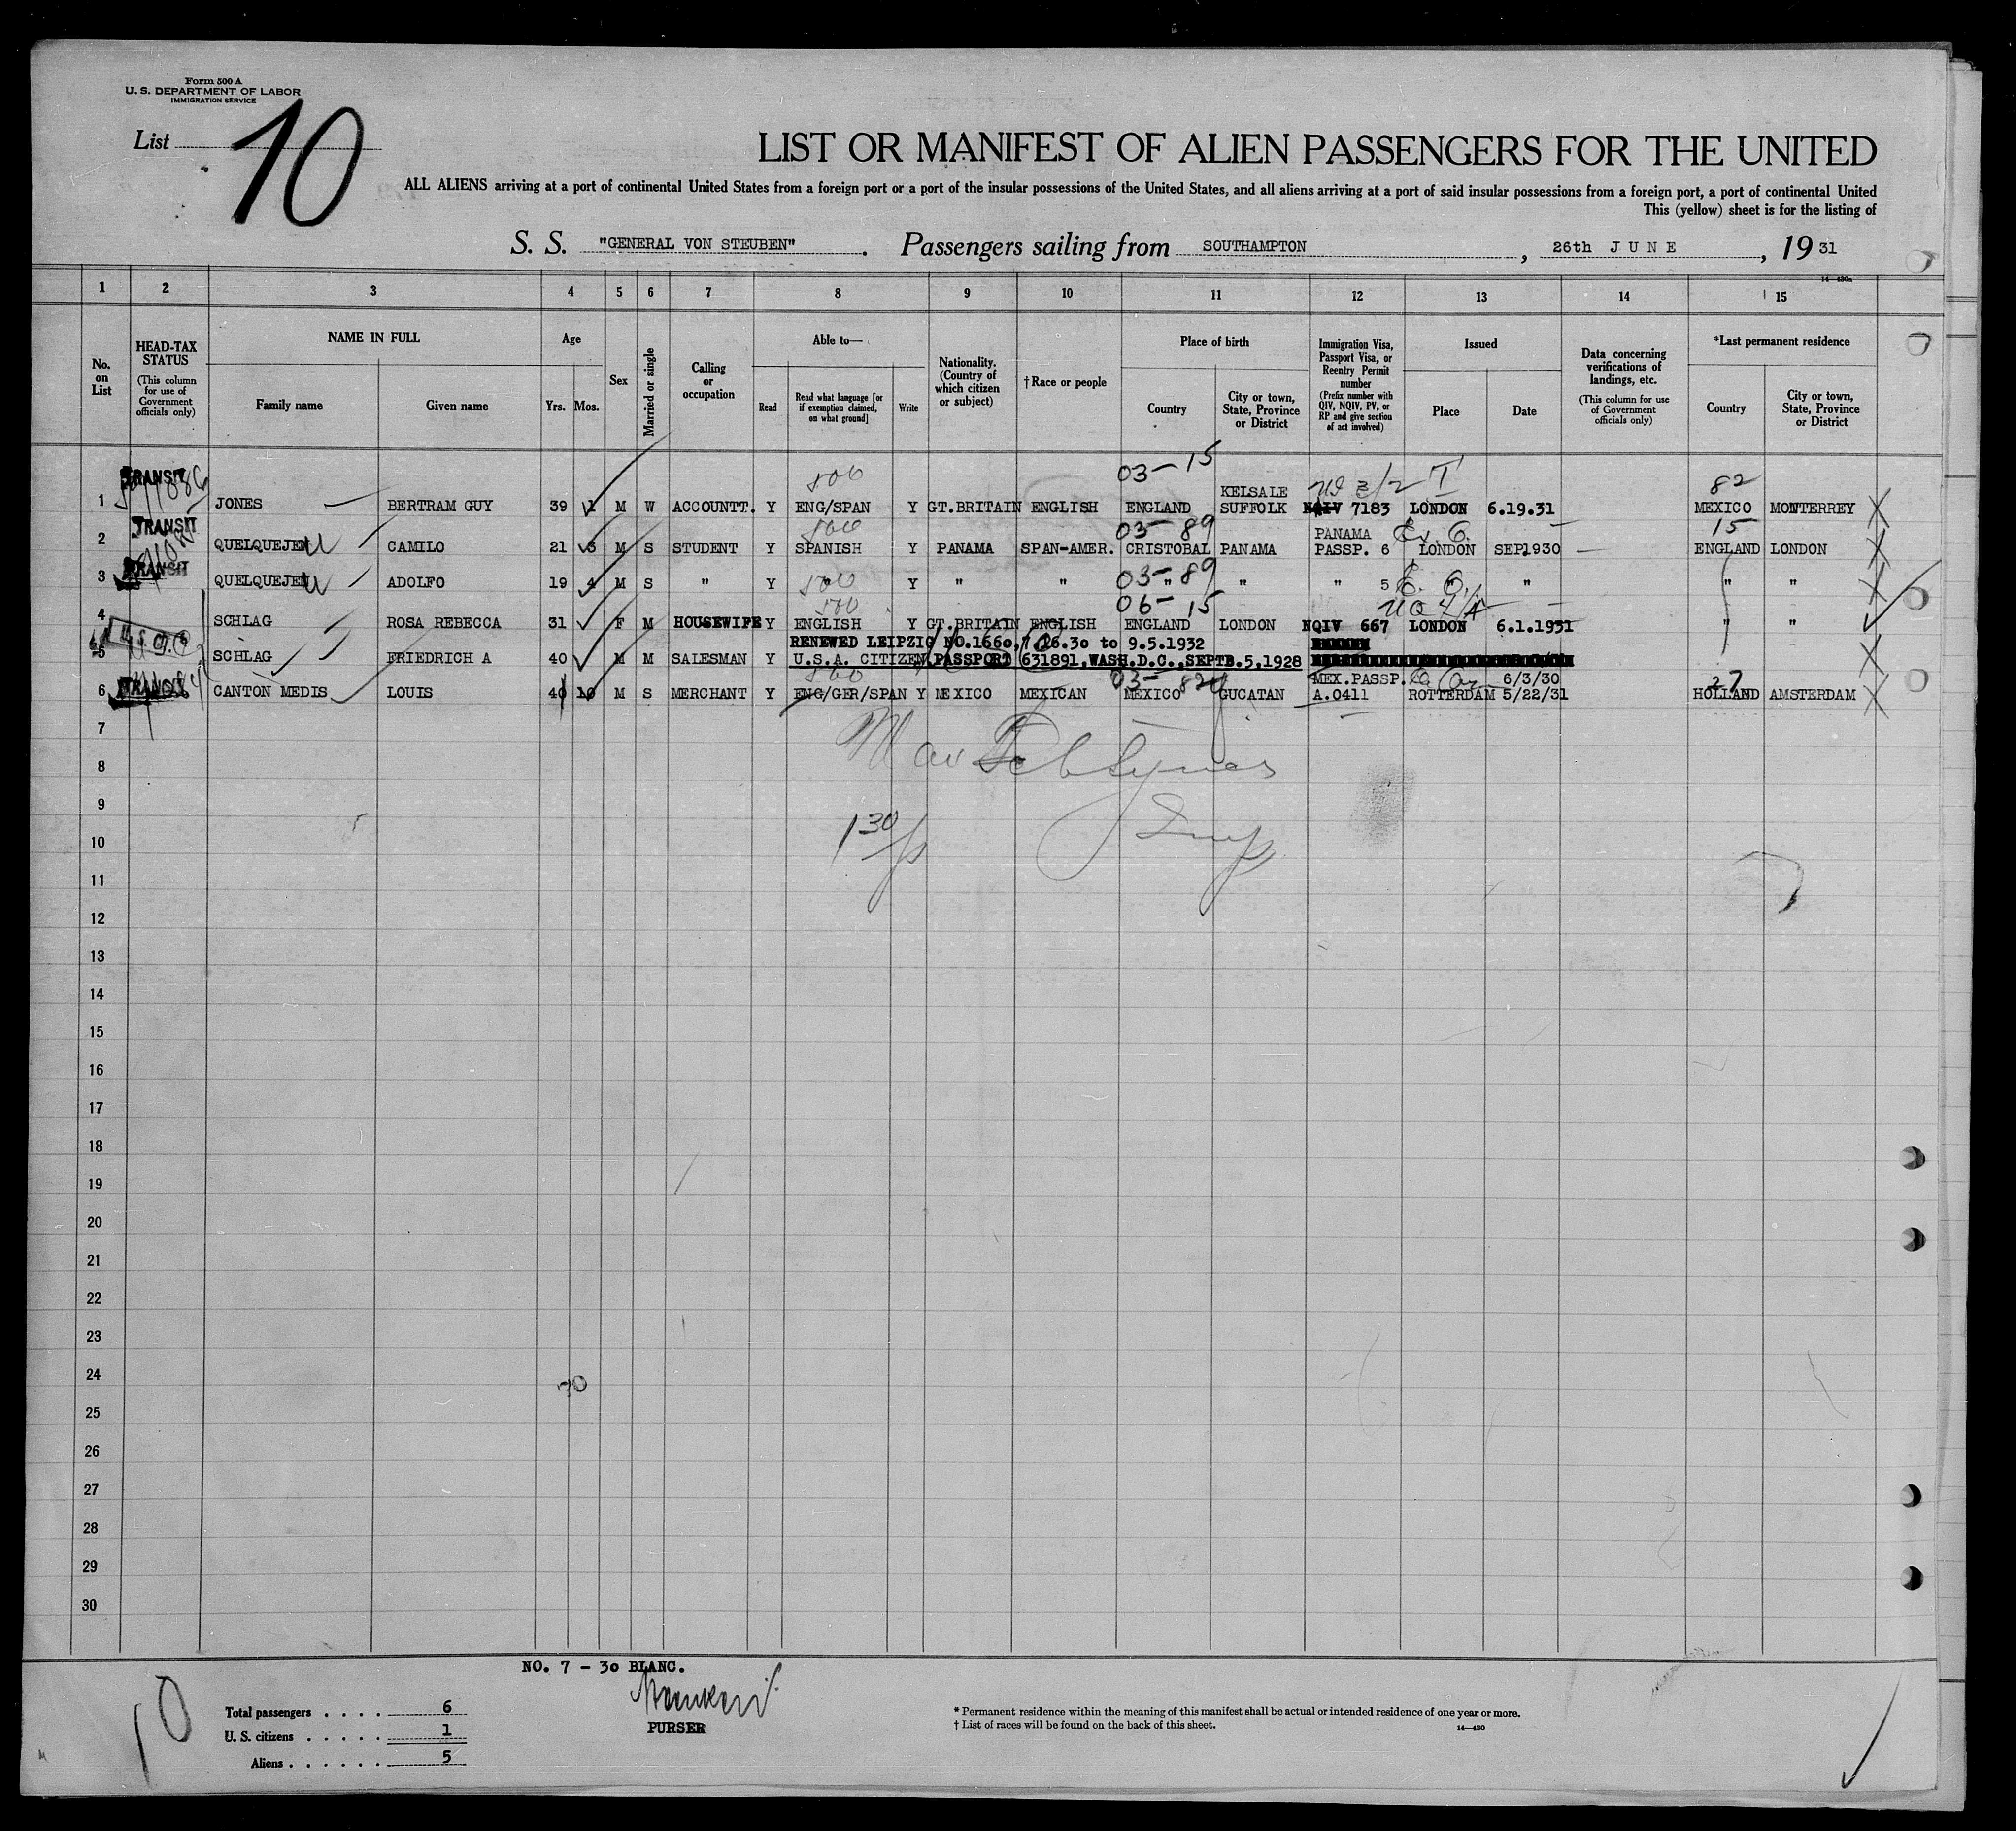 Form 500 A
U. S. DEPARTMENT OF LABOR
IMMIGRATION SERVICE
List 10
LIST OR MANIFEST OF ALIEN PASSENGERS FOR THE UNITED
ALL ALIENS arriving at a port of continental United States from a foreign port or a port of the insular possessions of the United States, and all aliens arriving at a port of said insular possessions from a foreign port, a port of continental United
This (yellow) sheet is for the listing of
S. S. "GENERAL VON STEUBEN". Passengers sailing from SOUTHAMPTON, 26th JUNE, 19 31
14—430a
1 2 3 4 5 6 7 8 9 10 11 12 13 14 15
No. on List
HEAD-TAX STATUS (This column for use of Government officials only)
NAME IN FULL
Family name
Given name
Age
Yrs. Mos.
Sex
Married or single
Calling or occupation
Able to—
Read
Read what language [or if exemption claimed, on what ground]
Write
Nationality. (Country of which citizen or subject)
†Race or people
Place of birth
Country
City or town, State, Province or District
Immigration Visa, Passport Visa, or Reentry Permit number (Prefix number with QIV, NQIV, PV, or RP and give section of act involved)
Issued
Place
Date
Data concerning verifications of landings, etc. (This column for use of Government officials only)
*Last permanent residence
Country
City or town, State, Province or District
TRANSIT 500 03-15 82
1 JONES BERTRAM GUY 39 1 M W ACCOUNTT. Y ENG/SPAN Y GT.BRITAIN ENGLISH ENGLAND KELSALE SUFFOLK NQIV 7183 LONDON 6.19.31 MEXICO MONTERREY
TRANSIT 500 03-89 15
2 QUELQUEJEU CAMILO 21 3 M S STUDENT Y SPANISH Y PANAMA SPAN-AMER. CRISTOBAL PANAMA PANAMA PASSP. 6 LONDON SEP1930 ENGLAND LONDON
TRANSIT 500 03-89
3 QUELQUEJEU ADOLFO 19 4 M S " Y " Y " " " " " 5 " " " "
500 06-15
4 SCHLAG ROSA REBECCA 31 F M HOUSEWIFE Y ENGLISH Y GT.BRITAIN ENGLISH ENGLAND LONDON NQIV 667 LONDON 6.1.1931 " "
RENEWED LEIPZIG NO.1660,7.26.30 to 9.5.1932
5 SCHLAG FRIEDRICH A 40 M M SALESMAN Y U.S.A. CITIZEN,PASSPORT 631891,WASH.D.C.,SEPTB.5,1928
TRANSIT 500 03-82 27
6 CANTON MEDIS LOUIS 40 10 M S MERCHANT Y ENG/GER/SPAN Y MEXICO MEXICAN MEXICO GUCATAN MEX.PASSP. A.0411 ROTTERDAM 6/3/30 5/22/31 HOLLAND AMSTERDAM
7
8
9
10
11
12
13
14
15
16
17
18
19
20
21
22
23
24
25
26
27
28
29
30
130/p
Insp
NO. 7 - 30 BLANC.
PURSER
10
Total passengers . . . . 6
U. S. citizens . . . . . 1
Aliens . . . . . . 5
* Permanent residence within the meaning of this manifest shall be actual or intended residence of one year or more.
† List of races will be found on the back of this sheet.
14—430